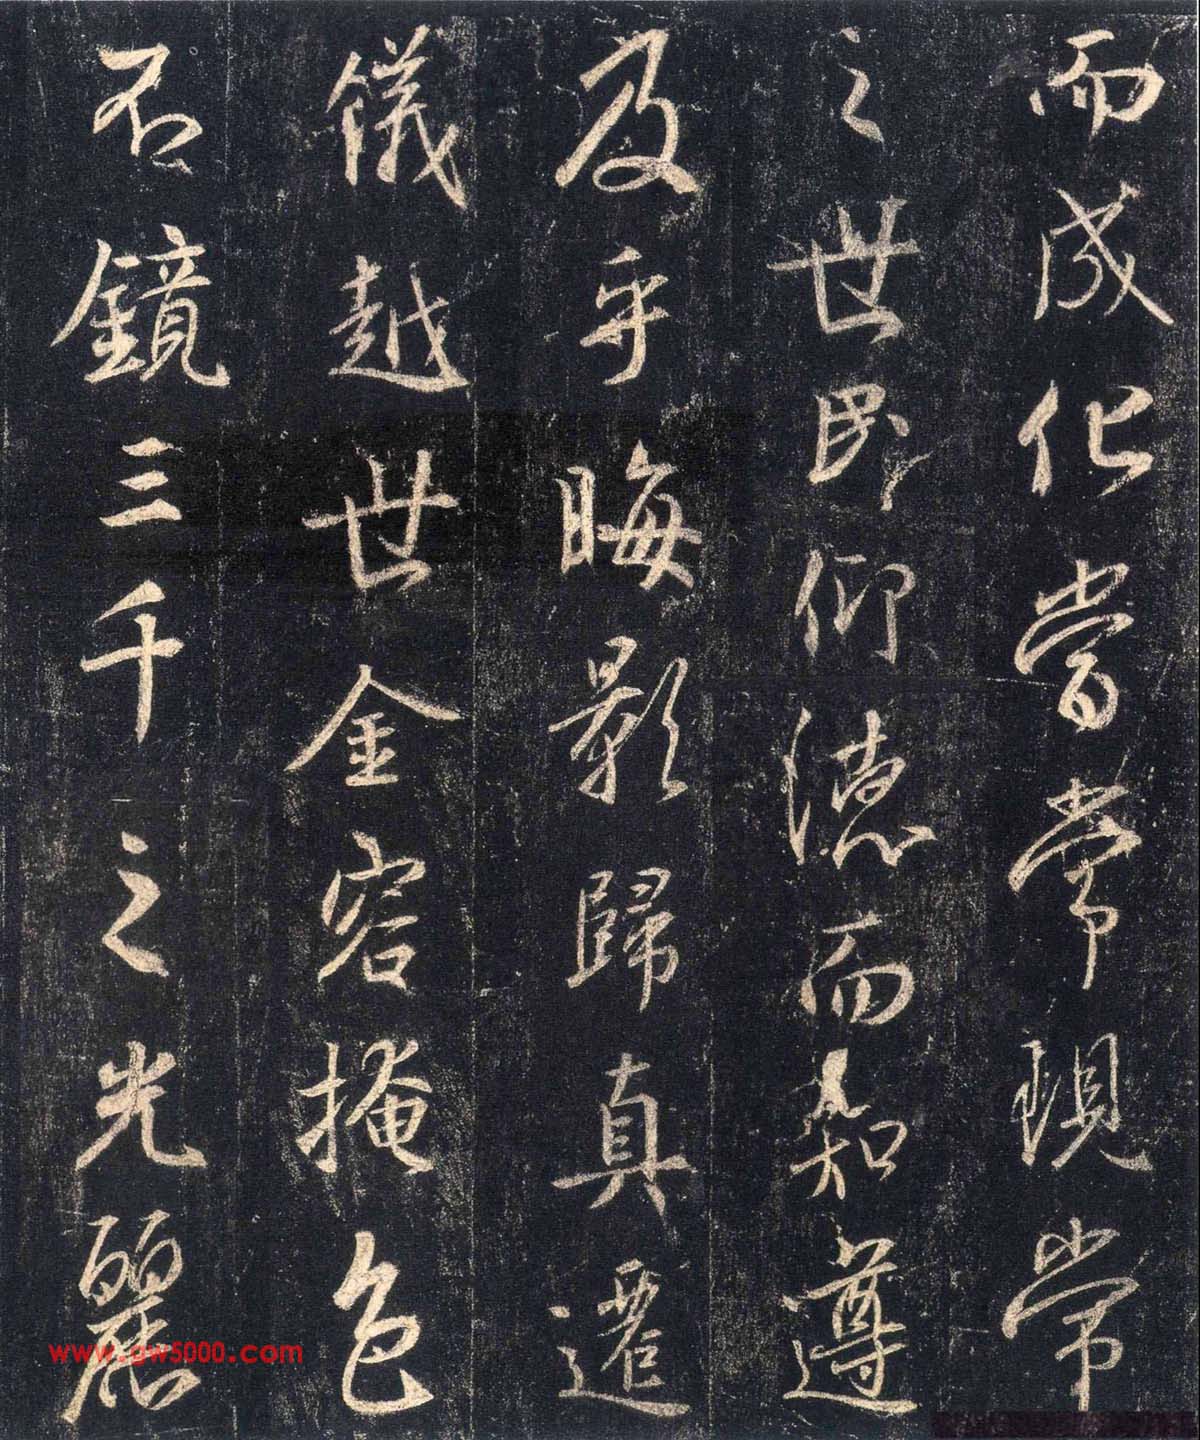 而成化當常現常
之世民仰德而知遵
及乎晦影歸真遷
儀越世金容掩色
不鏡三千之光麗
www.gw5000.com